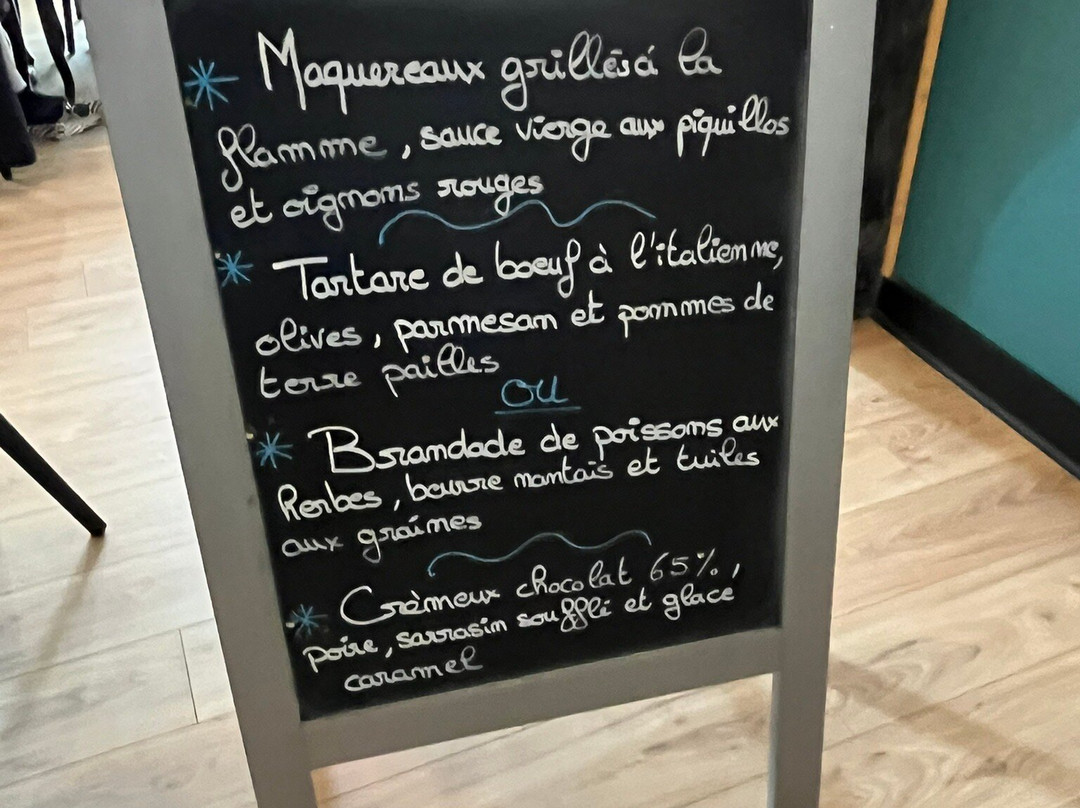 * Maquereaux grillés à la
flamme, sauce vierge aux piquillos
et oignons rouges
* Tartare de boeuf à l'italienne,
olives, parmesan et pommes de
terre pailles
OU
* Brandade de poissons aux
herbes, beurre nantais et tuiles
aux graines
* Crèmeux chocolat 65%,
poire, sarrasin soufflé et glace
caramel